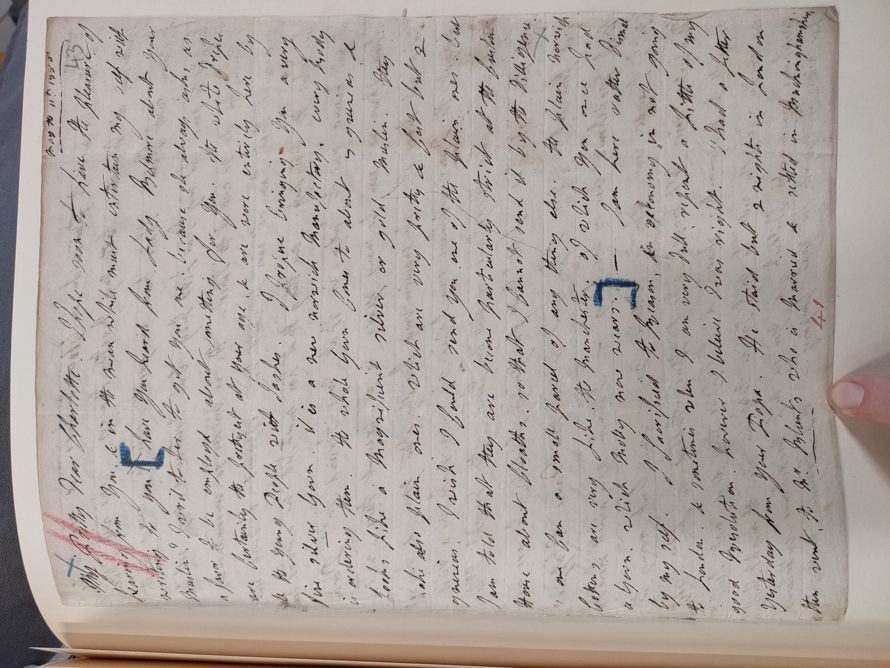 May the 11th 1778
43
My Pretty Dear Charlotte I hope soon to have the pleasure of
hearing from you. & in the mean while must entertain my self with
writing to you. Have you heard from Lady Belmore about your
Muslin? I word to her to get you one. because she always asks us
to be employed about something for you. the white
are certainly the prettyest at your age, & are wore entirely here by
the young People with Sashes. I is bringing you a very
fine silver Gown. it is a new norwich Manufactory. every body
is ordering them. the whole Gown comes to about 7 guineas &
looks like a Magnificent silver or gold Muslin. they
make also plain ones. which are very pretty & cost but 2
guineas. I wish I could send you one of the plain ones. but
I am told that they are become particularly strict at the Custom
House about Cloaths. so that I cannot send it by the Diligence
as one can a small parcel of any thing else. the plain norwich
Cottons are very like the Manchester. of which you once had
a Gown. which Molly now wears. — I am here rather tired
by my self. I sacrificed to Reason, & oeconomy in not going
to London. & sometimes when I am very dull repent a little of my
good Resolution. however I believe I was right. I had a letter
Yesterday from your Papa. He staid but 2 nights in London
then went to Mr. who is Married & settled in Buckinghamshire
41